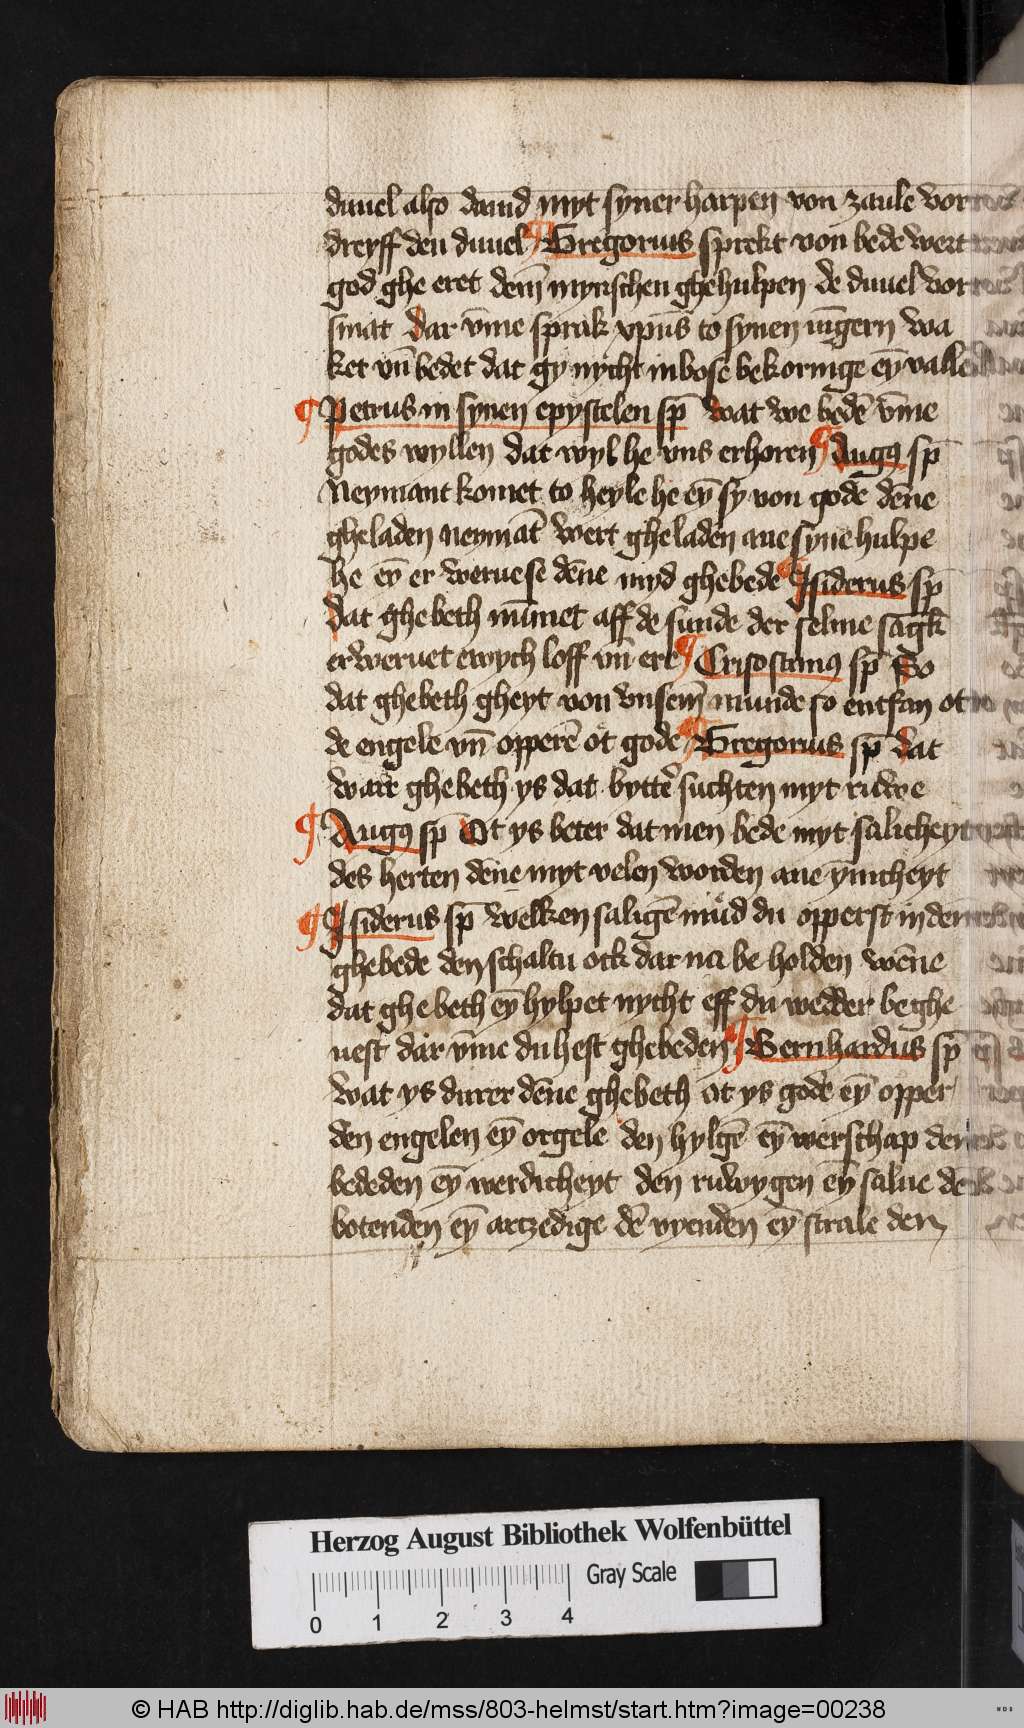 duuel also dauid myt syner harpen von zaule vor
dreyff den duuel ¶ Gregorius sprekt von bede wert
god ghe eret dem̄ mynschen ghehulpen de duuel vor
smat dar vm̄e sprak xpūs to synen iūgern wa
ket vn̄ bedet dat gy nycht in bose bekoringe ey̅ valle
¶ Petrus in synen epystelen sp̄ wat we bedē vm̄e
godes wyllen dat wyl he vns erhoren ¶ Augꝯ sp̄
Neymant komet to heyle he ey̅ sy von gode dēne
gheladen neymāt wert gheladen ane syne hulpe
he ey̅ er werue se dēne myd ghebede ¶ Isiderus sp̄
dat ghebeth nūmet aff de sunde der selme sagk
erweruet ewych loff vn̄ ere ¶ Crisostimꝯ sp̄ So
dat ghebeth gheyt von vnsem̄ munde so entfan ot
de engele vn̄ opperē ot gode ¶ Gregorius sp̄ dat
ware ghebeth ys dat byttē suchten myt ruwe
¶ Augꝯ sp̄ Ot ys beter dat men bede myt salicheyt
des herten dēne myt velen worden ane ynicheyt
¶ Isiderus sp̄ welken saligē mūd du opperst in dem
ghebede den schaltu ock dar na be holden wēne
dat ghe beth ey̅ hylpet nycht eff du wedder beghe
uest dar vm̄e du hest ghebeden ¶ Bernhardus sp̄
wat ys durer dēne ghebeth ot ys gode ey̅ opper
den engelen ey̅ orgele den hylgē ey̅ werschap den
bededen ey̅ werdicheyt den ruwygen ey̅ salue dē
botenden ey̅ artzedige dē vyenden ey̅ strale den
Herzog August Bibliothek Wolfenbüttel
Gray Scale
0 1 2 3 4
© HAB http://diglib.hab.de/mss/803-helmst/start.htm?image=00238